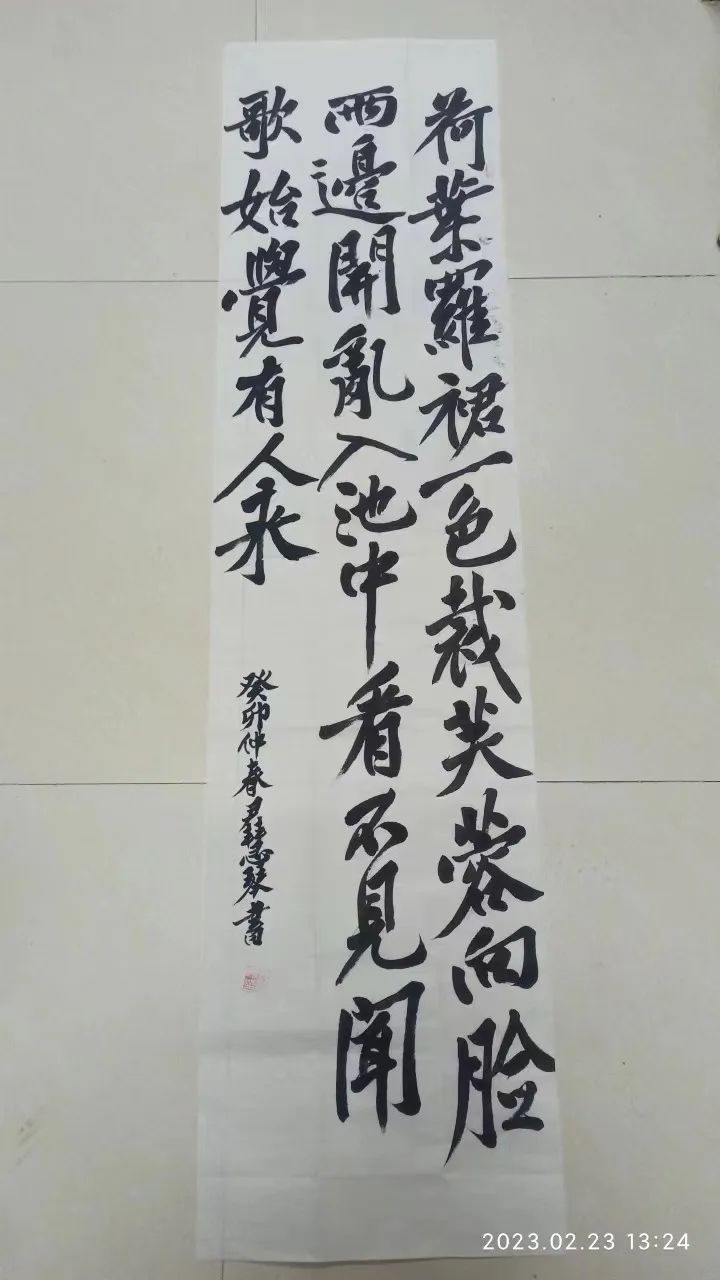 荷葉羅裙一色裁芙蓉向脸
兩邊開亂入池中看不見聞
歌始覺有人來
癸卯仲春尹慧琴書
2023.02.23 13:24